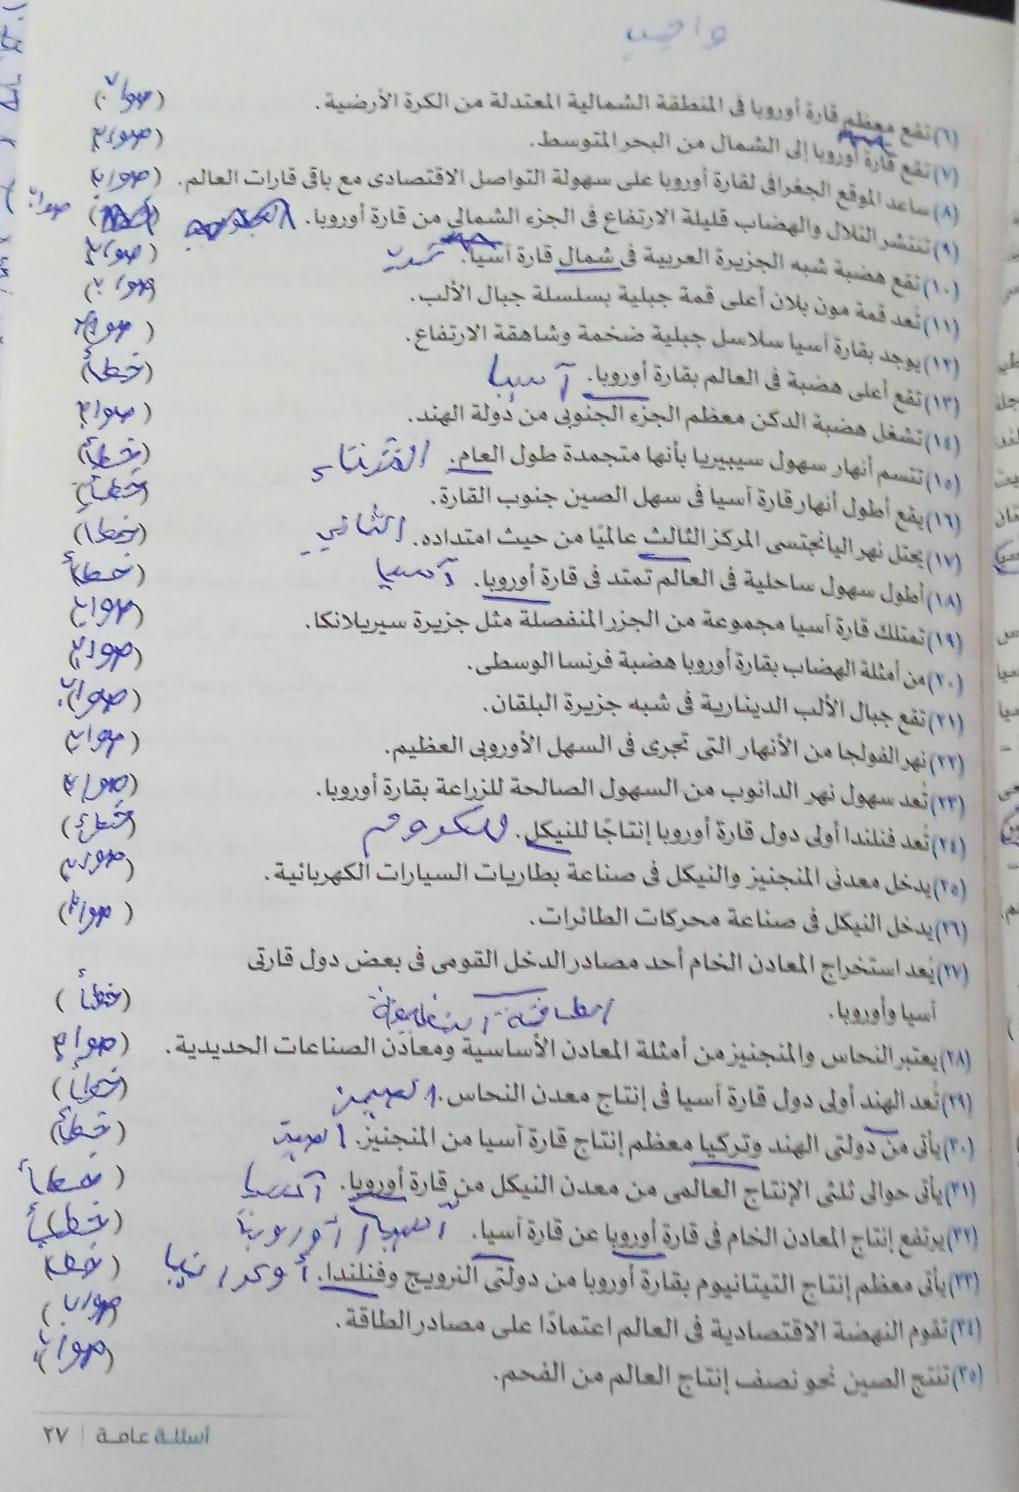 واجب
(٦) تقع معظم قارة أوروبا فى المنطقة الشمالية المعتدلة من الكرة الأرضية. (صواب)
(٧) تقع قارة أوروبا إلى الشمال من البحر المتوسط. (صواب)
(٨) ساعد الموقع الجغرافى لقارة أوروبا على سهولة التواصل الاقتصادى مع باقى قارات العالم. (صواب)
(٩) تنتشر التلال والهضاب قليلة الارتفاع فى الجزء الشمالي من قارة أوروبا. صواب
(١٠) تقع هضبة شبه الجزيرة العربية فى شمال قارة آسيا. (صواب)
(١١) تُعد قمة مون بلان أعلى قمة جبلية بسلسلة جبال الألب. (صواب)
(١٢) يوجد بقارة آسيا سلاسل جبلية ضخمة وشاهقة الارتفاع. (صواب)
(١٣) تقع أعلى هضبة فى العالم بقارة أوروبا. آسيا (خطأ)
(١٤) تشغل هضبة الدكن معظم الجزء الجنوبى من دولة الهند. (صواب)
(١٥) تتسم أنهار سهول سيبيريا بأنها متجمدة طول العام. الشتاء (خطأ)
(١٦) يقع أطول أنهار قارة آسيا فى سهل الصين جنوب القارة. (خطأ)
(١٧) يحتل نهر اليانجتسى المركز الثالث عالميًا من حيث امتداده. الثاني (خطأ)
(١٨) أطول سهول ساحلية فى العالم تمتد فى قارة أوروبا. آسيا (خطأ)
(١٩) تمتلك قارة آسيا مجموعة من الجزر المنفصلة مثل جزيرة سيريلانكا. (صواب)
(٢٠) من أمثلة الهضاب بقارة أوروبا هضبة فرنسا الوسطى. (صواب)
(٢١) تقع جبال الألب الدينارية فى شبه جزيرة البلقان. (صواب)
(٢٢) نهر الفولجا من الأنهار التى تجرى فى السهل الأوروبى العظيم. (صواب)
(٢٣) تُعد سهول نهر الدانوب من السهول الصالحة للزراعة بقارة أوروبا. (صواب)
(٢٤) تُعد فنلندا أولى دول قارة أوروبا إنتاجًا للنيكل. للكروم (خطأ)
(٢٥) يدخل معدنى المنجنيز والنيكل فى صناعة بطاريات السيارات الكهربائية. (صواب)
(٢٦) يدخل النيكل فى صناعة محركات الطائرات. (صواب)
(٢٧) يُعد استخراج المعادن الخام أحد مصادر الدخل القومى فى بعض دول قارتى
آسيا وأوروبا. الطاقة النظيفة (خطأ)
(٢٨) يعتبر النحاس والمنجنيز من أمثلة المعادن الأساسية ومعادن الصناعات الحديدية. (صواب)
(٢٩) تُعد الهند أولى دول قارة آسيا فى إنتاج معدن النحاس. الصين (خطأ)
(٣٠) يأتى من دولتى الهند وتركيا معظم إنتاج قارة آسيا من المنجنيز. الصين (خطأ)
(٣١) يأتى حوالى ثلثى الإنتاج العالمى من معدن النيكل من قارة أوروبا. آسيا (خطأ)
(٣٢) يرتفع إنتاج المعادن الخام فى قارة أوروبا عن قارة آسيا. آسيا / أوروبا (خطأ)
(٣٣) يأتى معظم إنتاج التيتانيوم بقارة أوروبا من دولتى النرويج وفنلندا. أوكرانيا (خطأ)
(٣٤) تقوم النهضة الاقتصادية فى العالم اعتمادًا على مصادر الطاقة. (صواب)
(٣٥) تنتج الصين نحو نصف إنتاج العالم من الفحم. (صواب)
أسئلة عامة | ٢٧